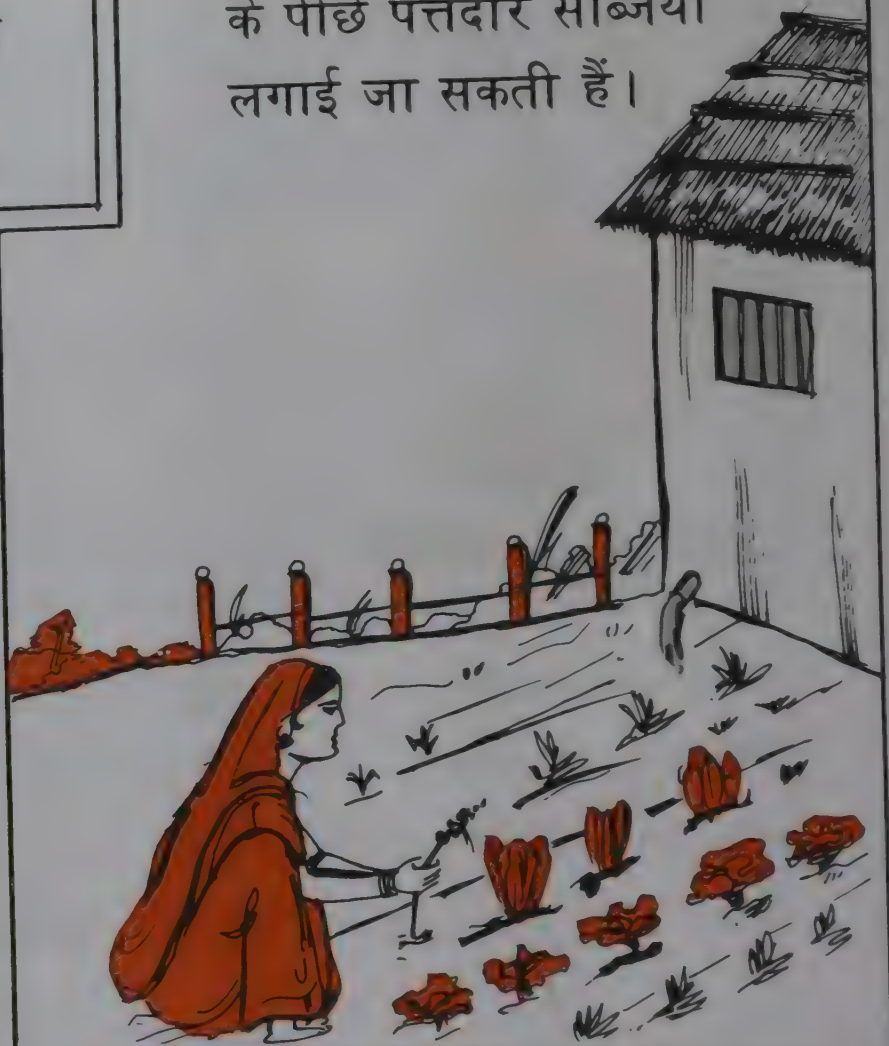 के पीछे पत्तेदार सब्जियाँ
लगाई जा सकती हैं।